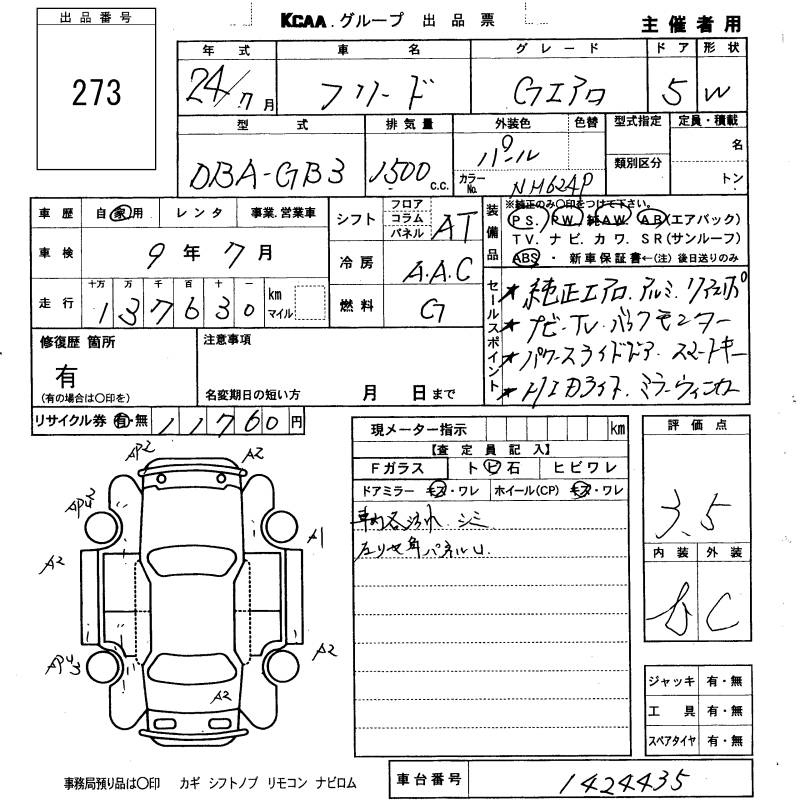 出品番号
273
KCAA.グループ 出品票
主催者用
年式 車名 グレード ドア 形状
24/7月 フリード Gエアロ 5 W
型式 排気量 外装色 色替 型式指定 定員・積載
DBA-GB3 1500c.c. パール 名
カラーNo. NH624P 類別区分 トン
車歴 自家用 レンタ 事業.営業車
車検 9年7月
走行 十万 万 千 百 十 一
137630 km マイル
シフト フロア コラム パネル AT
冷房 A.A.C
燃料 G
装備品 ※純正のみ○印をつけて下さい。
PS. PW. 純AW. AB(エアバック)
TV. ナビ. カワ. SR(サンルーフ)
ABS ・ 新車保証書←(注)後日送りのみ
セールスポイント
★純正エアロ.アルミ.リアスポ
★ナビ.TV.バックモニター
★パワースライドドア.スマートキー
★HIDライト.ミラーウィンカー
修復歴 箇所
有
(有の場合は○印を)
注意事項
名変期日の短い方 月 日まで
リサイクル券 有・無 11760円
現メーター指示 km
【査定員記入】
Fガラス トビ石 ヒビワレ
ドアミラー キズ・ワレ ホイール(CP) キズ・ワレ
車内各汚れ.シミ
パネルU.
評価点
3.5
内装 外装
C
AP2 A2
A2 A1
A2
A2
ジャッキ 有・無
工具 有・無
スペアタイヤ 有・無
事務局預り品は○印 カギ シフトノブ リモコン ナビロム
車台番号 1424435